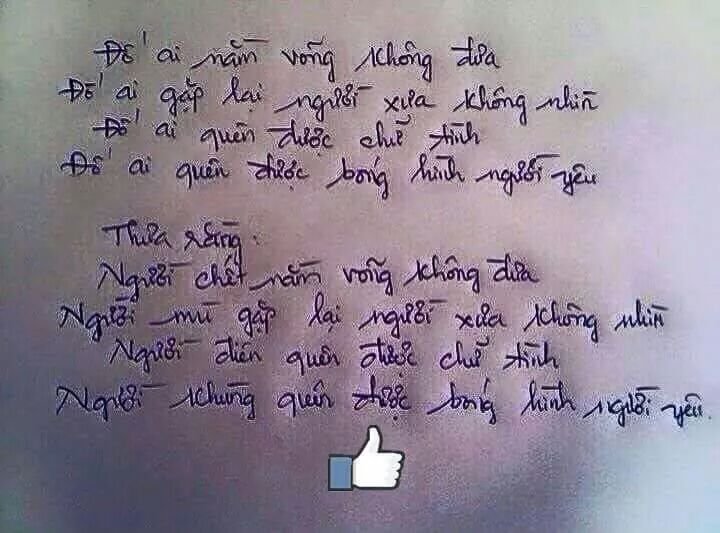 Đố ai nằm võng không đưa
Đố ai gặp lại người xưa không nhìn
Đố ai quên được chữ tình
Đố ai quên được bóng hình người yêu
Thưa rằng:
Người chết nằm võng không đưa
Người mù gặp lại người xưa không nhìn
Người điên quên được chữ tình
Người khùng quên được bóng hình người yêu.